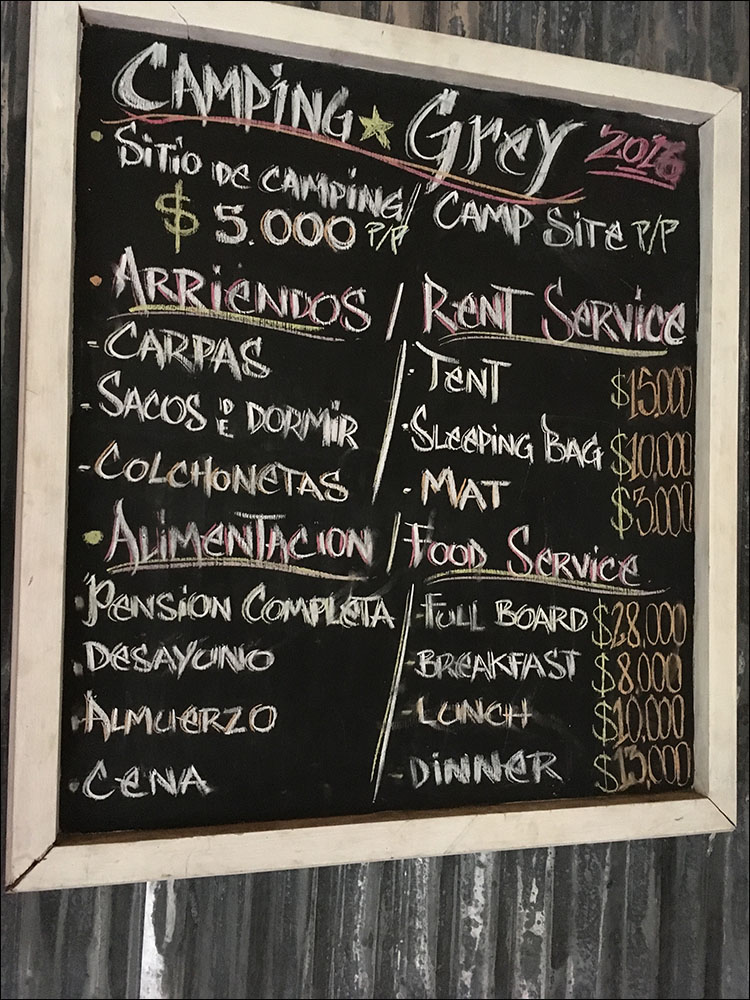 CAMPING ★ Grey 2016
• Sitio de camping / CAMP Site P/P
$ 5.000 P/P
• Arriendos / Rent Service
- CARPAS / • Tent $15.000
- SACOS DE DORMIR • Sleeping Bag $10.000
- COLCHONETAS • MAT $3.000
• Alimentacion / Food Service
• Pension Completa / - Full Board $28,000
• Desayuno - Breakfast $8,000
• Almuerzo - Lunch $10,000
• Cena - Dinner $13,000